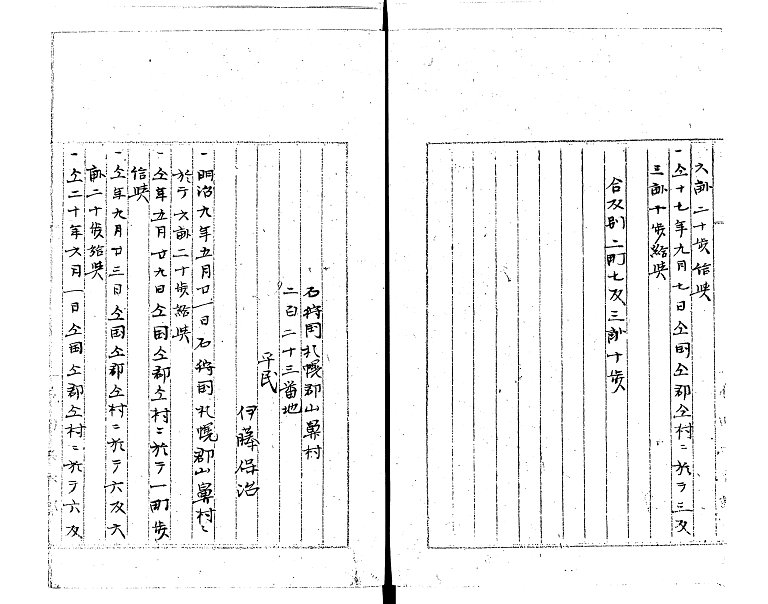 六畝二十歩給与
一仝十七年九月七日仝国仝郡仝村ニ於テ三反
三畝十歩給与
合反別二町七反三畝十歩
石狩国札幌郡山鼻村
二百二十三番地
平民
伊藤保治
一明治九年五月廿一日石狩国札幌郡山鼻村ニ
於テ六畝二十歩給与
一仝年五月廿九日仝国仝郡仝村ニ於テ一町歩
給与
一仝年九月廿三日仝国仝郡仝村ニ於テ六反六
畝二十歩給与
一仝二十年六月一日仝国仝郡仝村ニ於テ六反